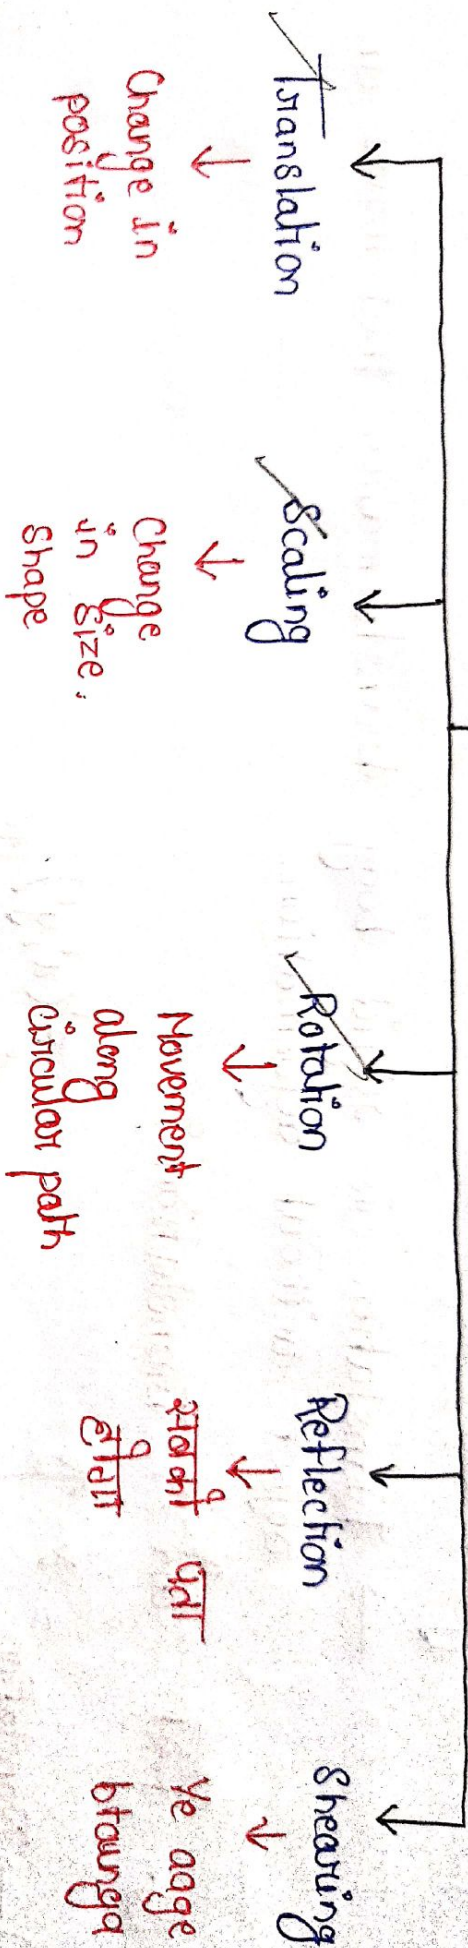 Translation
Change in
position
Scaling
Change
in size,
Shape
Rotation
Movement
along
circular path
Reflection
सबको पता
होगा
Shearing
Ye aage
btaunga